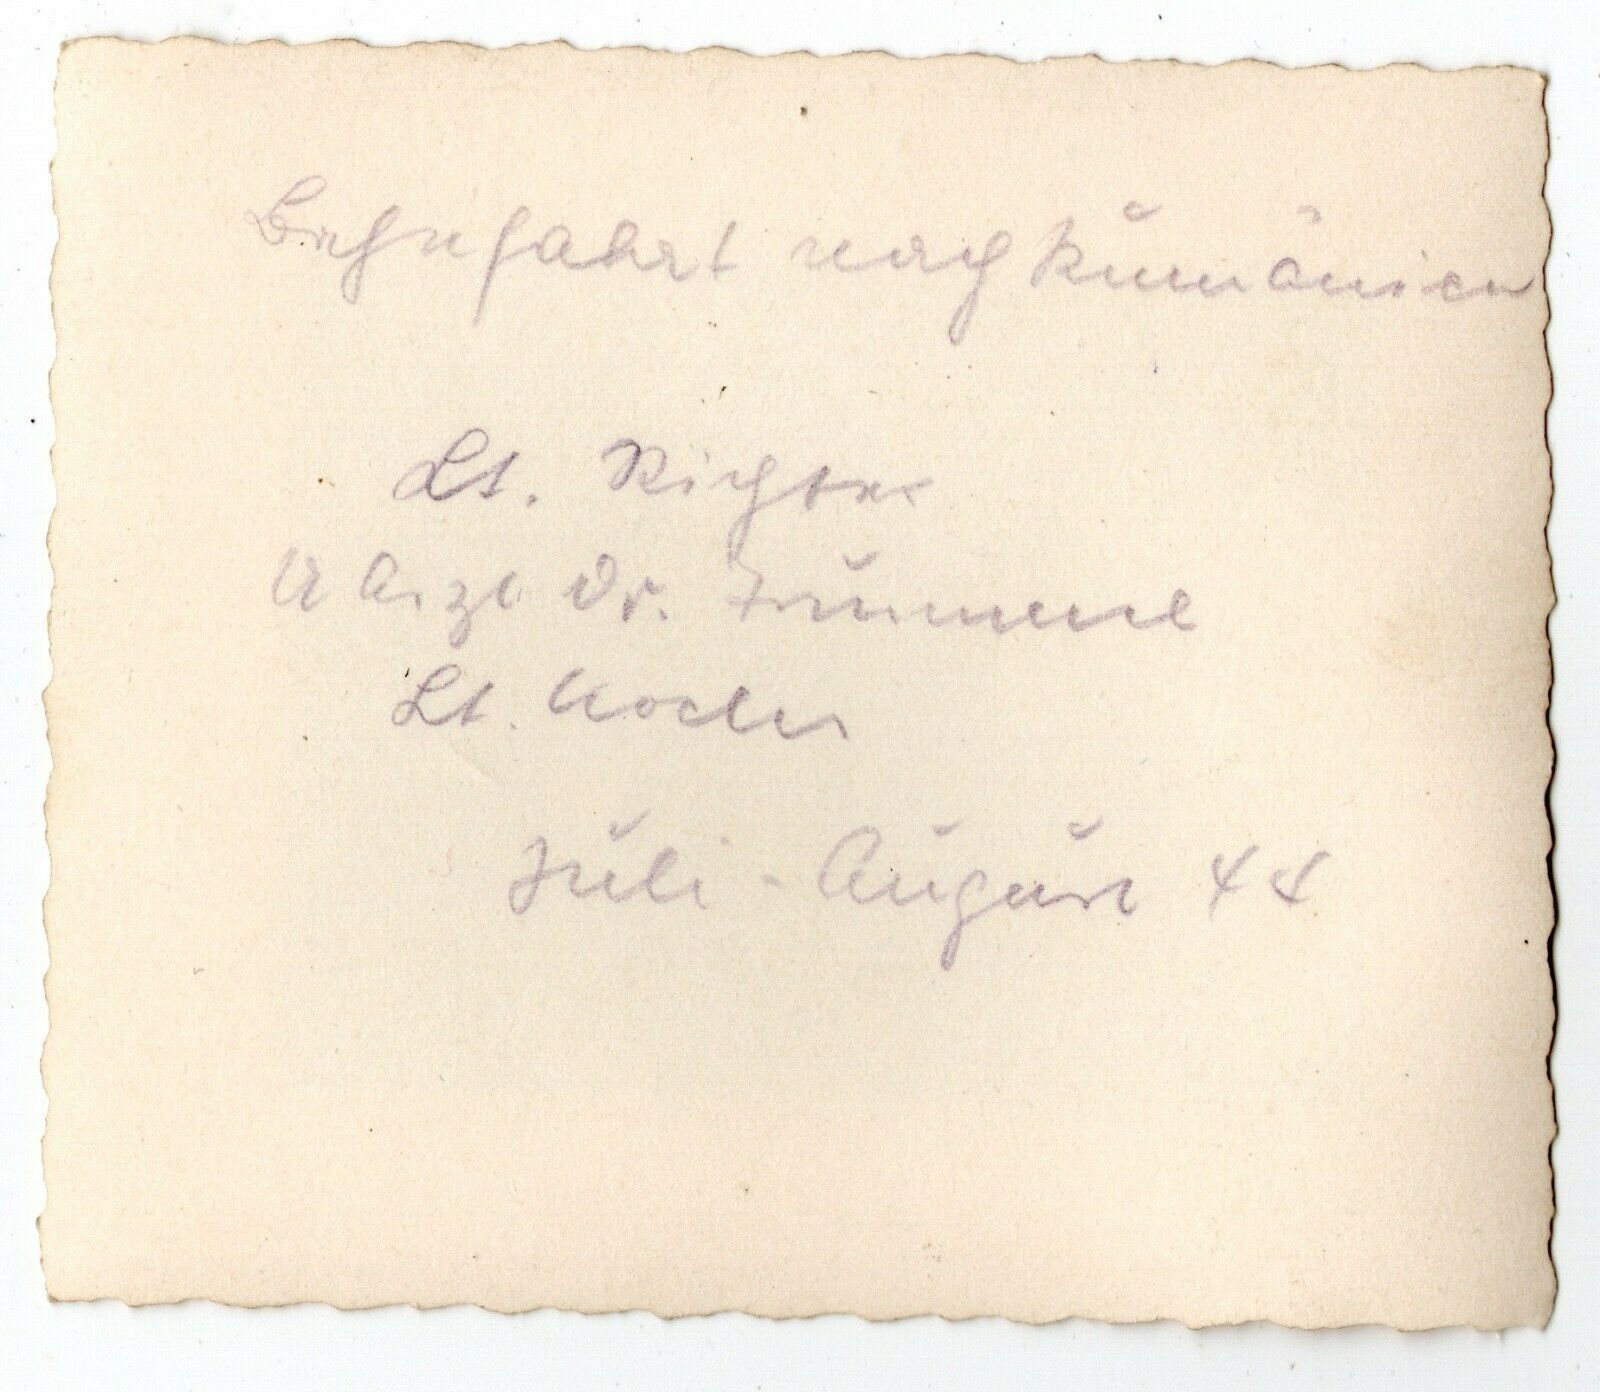 Bahnfahrt nach Rumänien
Lt. Richter
U Arzt Dr.
Lt.
Juli - August 44